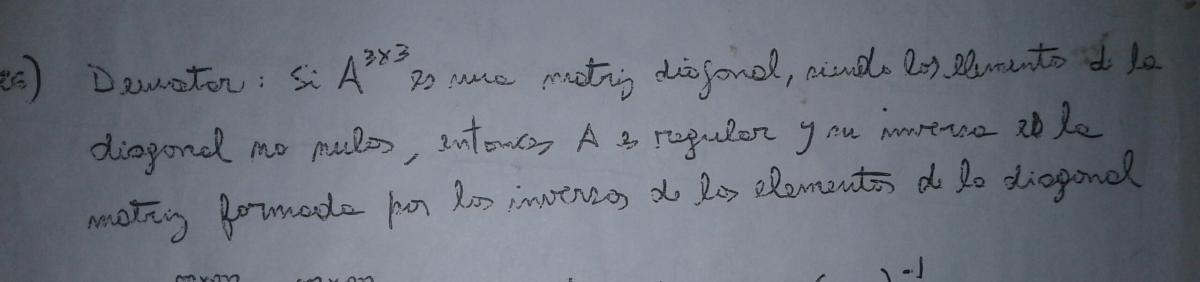 26) Demostar: Si A^3x3 es una matriz diagonal, siendo los elementos de la
diagonal no nulos, entonces A es regular y su inversa es la
matriz formada por los inversos de los elementos de la diagonal
-1